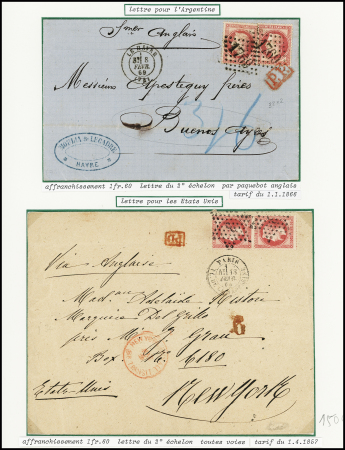 lettre pour l'Argentine
per Anglais
LE HAVRE
8
FEVR
69
Messieurs Aposteguy frères
Buenos Ayres
P.D.
HAVRE
affranchissement 1fr.60 lettre du 2° échelon par paquebot anglais
tarif du 1.1.1866
lettre pour les Etats Unis
P.D.
PARIS
Via Anglaise
Mad. Adelaide Ristori
Marquise Del Grillo
près Mr J. Grau
Box. No. 6180
New York
Etats-Unis
affranchissement 1fr.60 lettre du 2° échelon toutes voies tarif du 1.4.1857